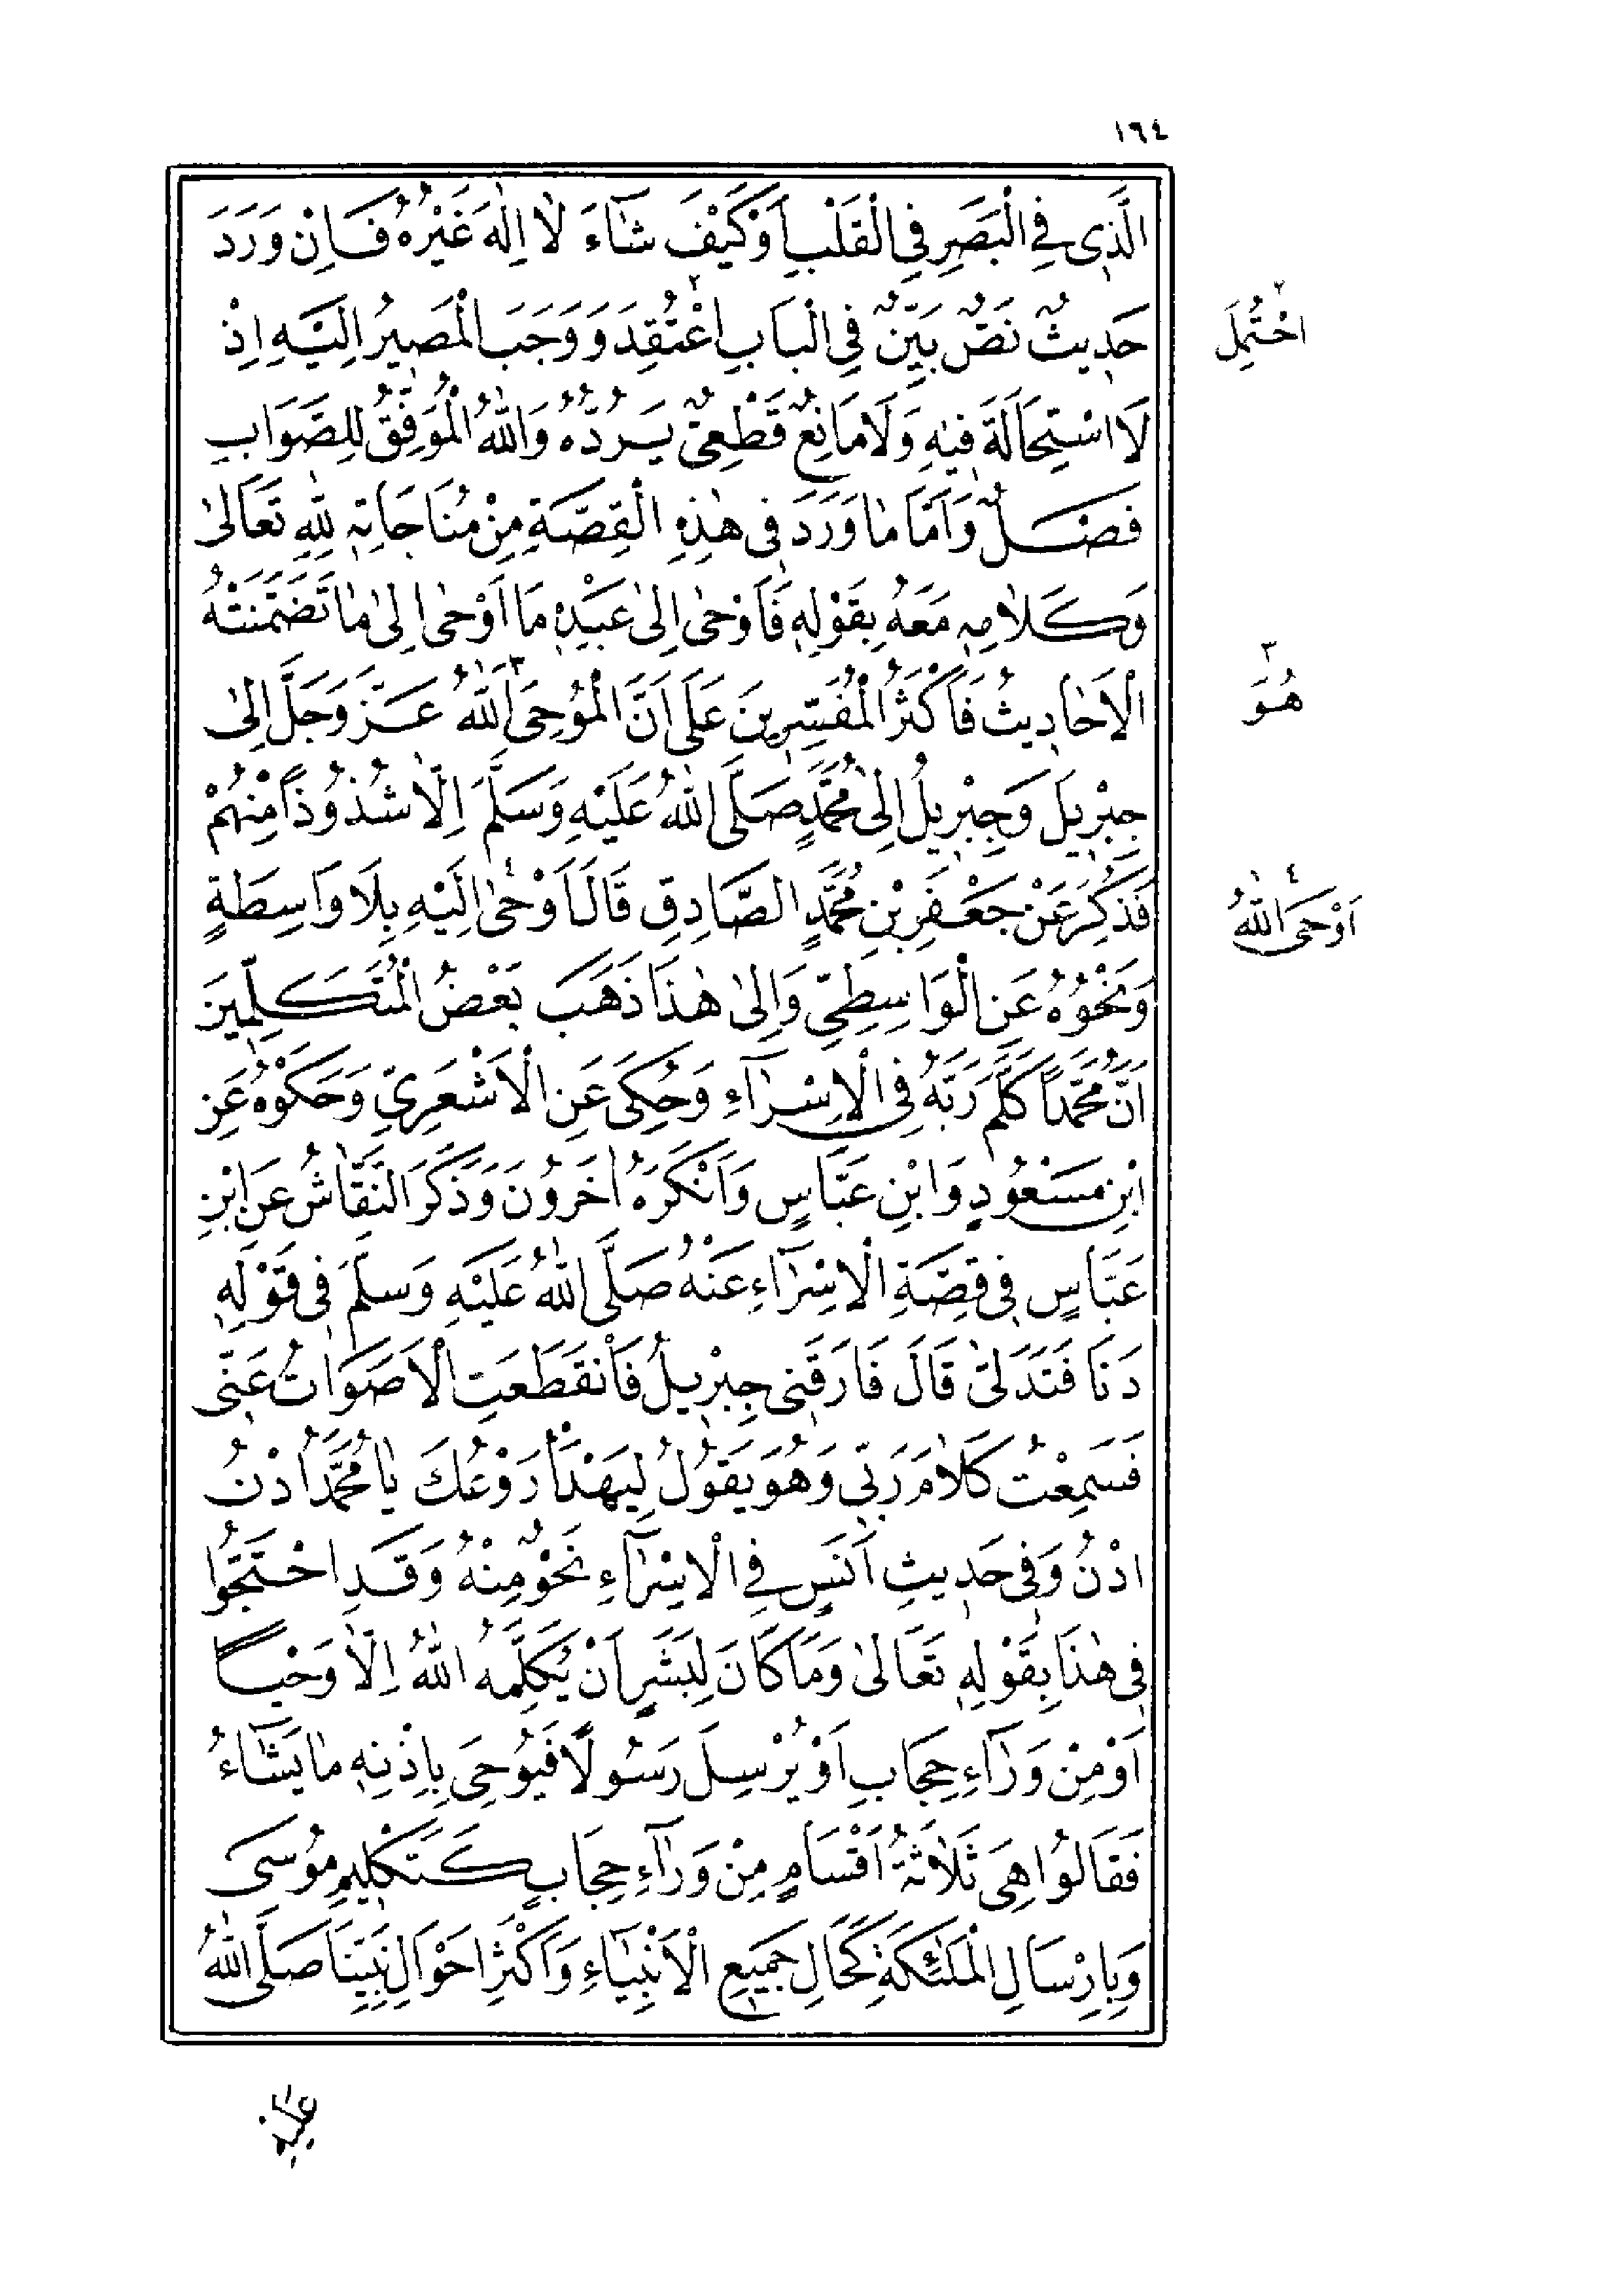 ١٦٤
الَّذِى فِي الْبَصَرِ فِي الْقَلْبِ اَوْ كَيْفَ شَآءَ لَا اِلٰهَ غَيْرُهُ فَاِنْ وَرَدَ
حَدِيثٌ نَصٌّ بَيِّنٌ فِي الْبَابِ اعْتُقِدَ ٢ وَوَجَبَ الْمَصِيرُ اِلَيْهِ اِذْ
لَا اسْتِحَالَةَ فِيهِ وَلَا مَانِعٌ قَطْعِيٌّ يَرُدُّهُ وَاللّٰهُ الْمُوَفِّقُ لِلصَّوَابِ
فَصْلٌ وَاَمَّا مَا وَرَدَ فِى هٰذِهِ الْقِصَّةِ مِنْ مُنَاجَاتِهِ لِلّٰهِ تَعَالٰى
وَكَلَامِهِ مَعَهُ بِقَوْلِهِ فَاَوْحٰى اِلٰى عَبْدِهِ مَا اَوْحٰى اِلٰى مَا تَضَمَّنَتْهُ
الْاَحَادِيثُ فَاَكْثَرُ الْمُفَسِّرِينَ عَلَى اَنَّ الْمُوحِىَ ٣ اللّٰهُ عَزَّ وَجَلَّ اِلٰى
جِبْرِيلَ وَجِبْرِيلُ اِلٰى مُحَمَّدٍ صَلَّى اللّٰهُ عَلَيْهِ وَسَلَّمَ اِلَّا شُذُوذًا مِنْهُمْ
فَذُكِرَ عَنْ جَعْفَرِ بْنِ مُحَمَّدٍ الصَّادِقِ قَالَ اَوْحٰى ٤ اِلَيْهِ بِلَا وَاسِطَةٍ
وَنَحْوُهُ عَنِ الْوَاسِطِيِّ وَاِلٰى هٰذَا ذَهَبَ بَعْضُ الْمُتَكَلِّمِينَ
اَنَّ مُحَمَّدًا كَلَّمَ رَبَّهُ فِى الْاِسْرَآءِ وَحُكِىَ عَنِ الْاَشْعَرِيِّ وَحَكَوْهُ عَنِ
ابْنِ مَسْعُودٍ وَابْنِ عَبَّاسٍ وَاَنْكَرَهُ اٰخَرُونَ وَذَكَرَ النَّقَّاشُ عَنِ ابْنِ
عَبَّاسٍ فِى قِصَّةِ الْاِسْرَآءِ عَنْهُ صَلَّى اللّٰهُ عَلَيْهِ وَسَلَّمَ فِى قَوْلِهِ
دَنَا فَتَدَلّٰى قَالَ فَارَقَنِى جِبْرِيلُ فَانْقَطَعَتِ الْاَصْوَاتُ عَنِّى
فَسَمِعْتُ كَلَامَ رَبِّى وَهُوَ يَقُولُ لِيَهْدَأْ رَوْعُكَ يَا مُحَمَّدُ اُدْنُ
اُدْنُ وَفِى حَدِيثِ اَنَسٍ فِى الْاِسْرَآءِ نَحْوٌ مِنْهُ وَقَدِ احْتَجُّوا
فِى هٰذَا بِقَوْلِهِ تَعَالٰى وَمَا كَانَ لِبَشَرٍ اَنْ يُكَلِّمَهُ اللّٰهُ اِلَّا وَحْيًا
اَوْ مِنْ وَرَآءِ حِجَابٍ اَوْ يُرْسِلَ رَسُولًا فَيُوحِىَ بِاِذْنِهِ مَا يَشَآءُ
فَقَالُوا هِىَ ثَلَاثَةُ اَقْسَامٍ مِنْ وَرَآءِ حِجَابٍ كَتَكْلِيمِ مُوسَى
وَبِاِرْسَالِ الْمَلٰئِكَةِ كَحَالِ جَمِيعِ الْاَنْبِيَآءِ وَاَكْثَرِ اَحْوَالِ نَبِيِّنَا صَلَّى اللّٰهُ
٢
احْتُمِلَ
٣
هُوَ
٤
اَوْحَى اللّٰهُ